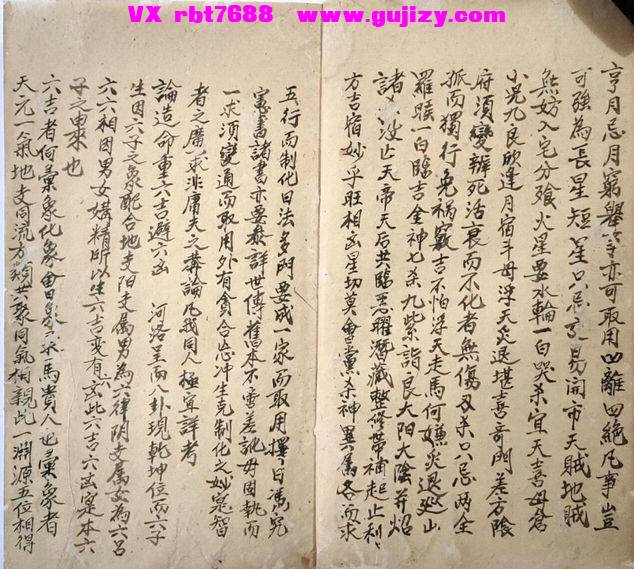 VX rbt7688 www.gujizy.com
亨月忌月窮舉等亦可取用凶離四絕凡事豈
可強為長星短星只忌交易開市天賊地賊
無妨入宅分飱火星要水輪一白哭杀宜天喜毋倉
小児九良欣逢月宿斗母浮天炎退堪喜奇門差方陰
府須變辨死活衰而不化者無傷刃杀只忌兩全
孤而獨行免禍竅吉不怕浮天走馬何嫌炎退巡山
羅睺一白臨吉金神七杀九紫詣良大阳大陰并炤
諸沒止天帝天后共臨悪曜潛藏整修帶補起止利
方吉宿妙乎旺相凶星切莫會黨杀神異属各而求
五行而制化日法多門要成一家而取用擇日馮究
憲書諸書亦要叅詳世傳舊本不無差訛毋固執而
一求須變通而取用外有貪合忘冲生克制化之妙寔智
者之廣求非庸夫之莽論凡我同人極宜詳考
論造命重六吉避六凶 河洛呈而八卦現乾坤位而六子
生因六子之象配合地支阳支属男為六律阴支属女為六呂
六六相因男女媾精所以生六吉变有六凶此六吉六凶寔本六
子之由來也
六吉者何彙象化象會日象禄馬貴人也彙象者
天元一氣地支同流方類共聚同氣相親此一渊源五位相得